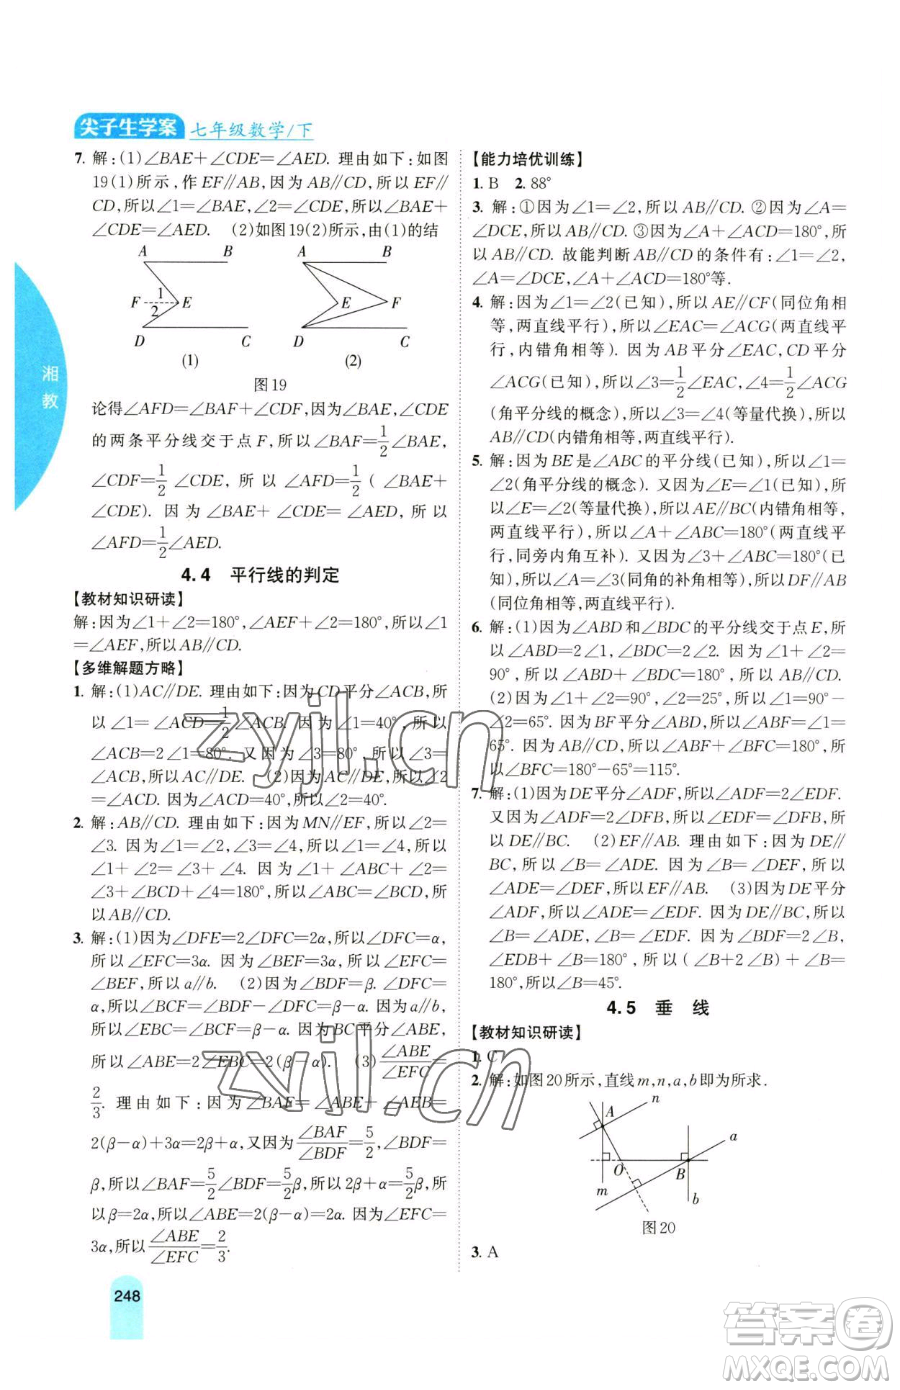 尖子生学案 七年级数学/下
7. 解:(1)∠BAE+∠CDE=∠AED. 理由如下:如图
19(1)所示,作EF∥AB,因为AB∥CD,所以EF∥
CD,所以∠1=∠BAE,∠2=∠CDE,所以∠BAE+
∠CDE=∠AED. (2)如图19(2)所示,由(1)的结
A B A B
F 1 2 E E F
D C D C
(1) (2)
图19
论得∠AFD=∠BAF+∠CDF,因为∠BAE,∠CDE
的两条平分线交于点F,所以∠BAF=1/2∠BAE,
∠CDF=1/2∠CDE,所以∠AFD=1/2(∠BAE+
∠CDE). 因为∠BAE+∠CDE=∠AED,所以
∠AFD=1/2∠AED.
4.4 平行线的判定
【教材知识研读】
解:因为∠1+∠2=180°,∠AEF+∠2=180°,所以∠1
=∠AEF,所以AB∥CD.
【多维解题方略】
1. 解:(1)AC∥DE. 理由如下:因为CD平分∠ACB,所
以∠1=∠ACD=1/2∠ACB. 因为∠1=40°,所以
∠ACB=2∠1=80°. 又因为∠3=80°,所以∠3=
∠ACB,所以AC∥DE. (2)因为AC∥DE,所以∠2
=∠ACD. 因为∠ACD=40°,所以∠2=40°.
2. 解:AB∥CD. 理由如下:因为MN∥EF,所以∠2=
∠3. 因为∠1=∠2,∠3=∠4,所以∠1=∠2=∠3=
∠4,所以∠1+∠2=∠3+∠4. 因为∠1+∠ABC+∠2=
∠3+∠BCD+∠4=180°,所以∠ABC=∠BCD,所
以AB∥CD.
3. 解:(1)因为∠DFE=2∠DFC=2α,所以∠DFC=α,
所以∠EFC=3α. 因为∠BEF=3α,所以∠EFC=
∠BEF,所以a∥b. (2)因为∠BDF=β. ∠DFC=
α,所以∠BCF=∠BDF-∠DFC=β-α. 因为a∥b,所
以∠EBC=∠BCF=β-α. 因为BC平分∠ABE,所
以∠ABE=2∠EBC=2(β-α). (3)∠ABE/∠EFC=
2/3. 理由如下:因为∠BAF=∠ABE+∠AEB=
2(β-α)+3α=2β+α,又因为∠BAF/∠BDF=5/2,∠BDF=
β,所以∠BAF=5/2∠BDF=5/2β,所以2β+α=5/2β,所
以β=2α,所以∠ABE=2(β-α)=2α. 因为∠EFC=
3α,所以∠ABE/∠EFC=2/3.
【能力培优训练】
1. B 2. 88°
3. 解:①因为∠1=∠2,所以AB∥CD. ②因为∠A=
∠DCE,所以AB∥CD. ③因为∠A+∠ACD=180°,所
以AB∥CD. 故能判断AB∥CD的条件有:∠1=∠2,
∠A=∠DCE,∠A+∠ACD=180°等.
4. 解:因为∠1=∠2(已知),所以AE∥CF(同位角相
等,两直线平行),所以∠EAC=∠ACG(两直线平行,
内错角相等). 因为AB平分∠EAC,CD平分
∠ACG(已知),所以∠3=1/2∠EAC,∠4=1/2∠ACG
(角平分线的概念),所以∠3=∠4(等量代换),所以
AB∥CD(内错角相等,两直线平行).
5. 解:因为BE是∠ABC的平分线(已知),所以∠1=
∠2(角平分线的概念). 又因为∠E=∠1(已知),所
以∠E=∠2(等量代换),所以AE∥BC(内错角相等,
两直线平行),所以∠A+∠ABC=180°(两直线平行,
同旁内角互补). 又因为∠3+∠ABC=180°(已
知),所以∠3=∠A(同角的补角相等),所以DF∥AB
(同位角相等,两直线平行).
6. 解:(1)因为∠ABD和∠BDC的平分线交于点E,所
以∠ABD=2∠1,∠BDC=2∠2. 因为∠1+∠2=
90°,所以∠ABD+∠BDC=180°,所以AB∥CD.
(2)因为∠1+∠2=90°,∠2=25°,所以∠1=90°-
∠2=65°. 因为BF平分∠ABD,所以∠ABF=∠1=
65°. 因为AB∥CD,所以∠ABF+∠BFC=180°,所
以∠BFC=180°-65°=115°.
7. 解:(1)因为DE平分∠ADF,所以∠ADF=2∠EDF.
又因为∠ADF=2∠DFB,所以∠EDF=∠DFB,所
以DE∥BC. (2)EF∥AB. 理由如下:因为DE∥
BC,所以∠B=∠ADE. 又因为∠B=∠DEF,所以
∠ADE=∠DEF,所以EF∥AB. (3)因为DE平分
∠ADF,所以∠ADE=∠EDF. 因为DE∥BC,所以
∠B=∠ADE,所以∠B=∠EDF. 因为∠BDF=2∠B,
∠EDB+∠B=180°,所以(∠B+2∠B)+∠B=
180°,所以∠B=45°.
4.5 垂线
【教材知识研读】
1. C
2. 解:如图20所示,直线m,n,a,b即为所求.
n A a O B m b
图20
3. A
湘教
248
zyjl.cn
zyjl.cn
答案圈
MXQE.COM